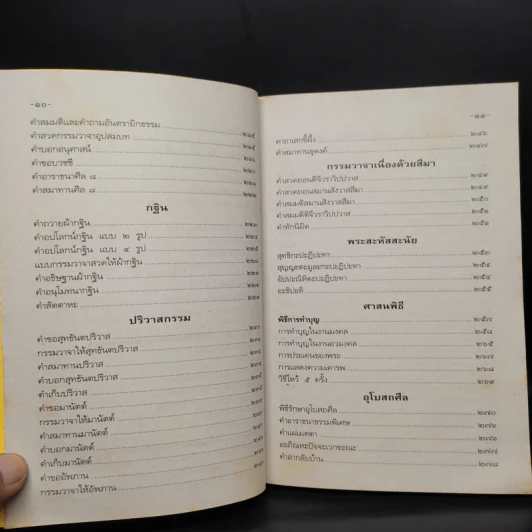 -๑๐-
คำสมมติและคำถามอันตรายิกธรรม
คำสวดกรรมวาจาอุปสมบท
คำบอกอนุศาสน์
คำขอบวชชี
คำอาราธนาศีล ๘
คำสมาทานศีล ๘
กฐิน
คำถวายผ้ากฐิน
คำอปโลกน์กฐิน แบบ ๒ รูป
คำอปโลกน์กฐิน แบบ ๔ รูป
แบบกรรมวาจาสวดให้ผ้ากฐิน
คำอธิษฐานผ้ากฐิน
คำอนุโมทนากฐิน
คำสัตตาหะ
ปริวาสกรรม
คำขอสุทธันตปริวาส
กรรมวาจาให้สุทธันตปริวาส
คำสมาทานปริวาส
คำบอกสุทธันตปริวาส
คำเก็บปริวาส
คำขอมานัตต์
กรรมวาจาให้มานัตต์
คำสมาทานมานัตต์
คำบอกมานัตต์
คำเก็บมานัตต์
คำขออัพภาน
กรรมวาจาให้อัพภาน
-๑๑-
คาถาเสกขี้ผึ้ง ๒๔๖
คำสมาทานธุดงค์ ๒๔๗
กรรมวาจาเนื่องด้วยสีมา
คำสวดถอนติจีวราวิปปวาส ๒๔๙
คำสวดถอนสมานสังวาสสีมา ๒๔๙
คำสมมติสมานสังวาสสีมา ๒๕๐
คำสมมติติจีวราวิปปวาส ๒๕๑
คำทักนิมิต ๒๕๑
พระสะหัสสะนัย
สุทธิกะปะฏิปะทา ๒๕๓
สุญญะตะมูละกะปะฏิปะทา ๒๕๔
อัปปะณิหิตะปะฏิปะทา ๒๕๔
อะธิปะติ ๒๕๕
ศาสนพิธี
พิธีการทำบุญ ๒๕๗
การทำบุญในงานมงคล ๒๕๘
การทำบุญในงานอวมงคล ๒๖๕
การประเคนของพระ ๒๖๗
การแสดงความเคารพ ๒๖๘
วิธีไหว้ ๕ ครั้ง ๒๖๙
อุโบสถศีล
พิธีรักษาอุโบสถศีล ๒๗๐
คำอาราธนาธรรมพิเศษ
คำแผ่เมตตา
อะภิณหะปัจจะเวกขะณะ ๒๗๗
คำลากลับบ้าน ๒๗๘